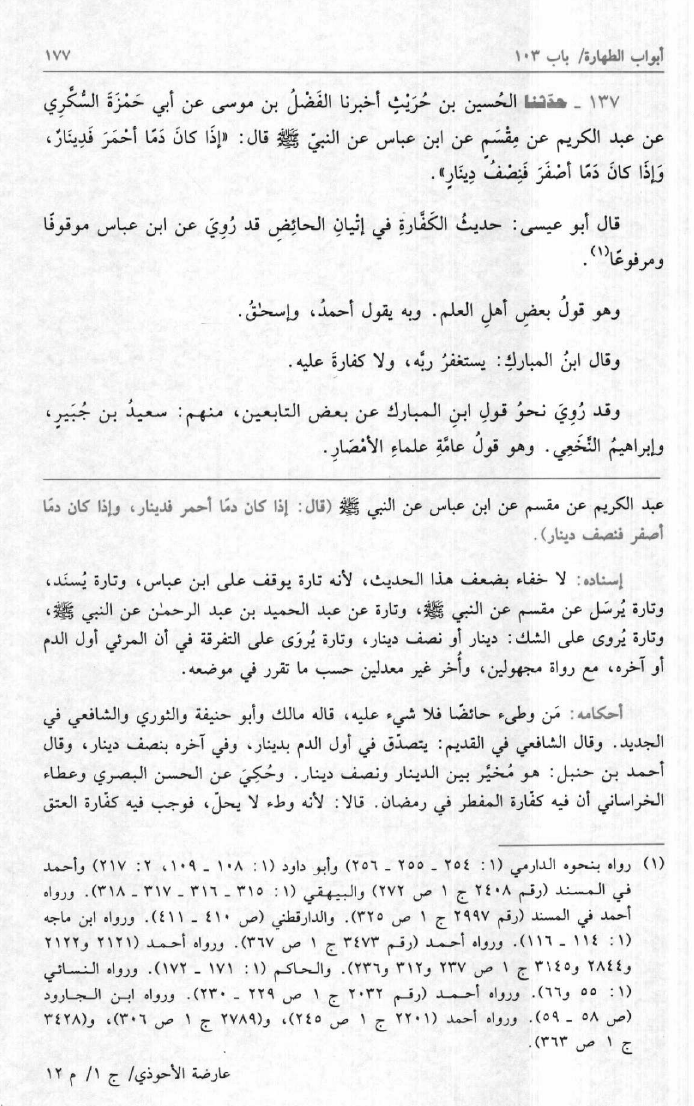 أبواب الطهارة/ باب ١٠٣ ١٧٧
١٣٧ ـ حدّثنا الحُسين بن حُرَيْثٍ أخبرنا الفَضْلُ بن موسى عن أبي حَمْزَةَ السُّكَّرِي
عن عبد الكريم عن مِقْسَمٍ عن ابن عباس عن النبيّ ﷺ قال: «إذَا كانَ دَمًا أحْمَرَ فَدِينَارٌ،
وَإذَا كانَ دَمًا أصْفَرَ فَنِصْفُ دِينَارٍ».
قال أبو عيسى: حديثُ الكَفَّارةِ في إتْيانِ الحائِضِ قد رُوِيَ عن ابن عباس موقوفًا
ومرفوعًا(١).
وهو قولُ بعضِ أهلِ العلم. وبه يقول أحمدُ، وإسحٰقُ.
وقال ابنُ المباركِ: يستغفرُ ربَّه، ولا كفارةَ عليه.
وقد رُوِيَ نحوُ قولِ ابنِ المبارك عن بعض التابعين، منهم: سعيدُ بن جُبَيرٍ،
وإبراهيمُ النَّخَعِي. وهو قولُ عامَّةِ علماءِ الأمْصَارِ.
عبد الكريم عن مقسم عن ابن عباس عن النبي ﷺ (قال: إذا كان دمًا أحمر فدينار، وإذا كان دمًا
أصفر فنصف دينار).
إسناده: لا خفاء بضعف هذا الحديث، لأنه تارة يوقف على ابن عباس، وتارة يُسنَد،
وتارة يُرسَل عن مقسم عن النبي ﷺ، وتارة عن عبد الحميد بن عبد الرحمٰن عن النبي ﷺ،
وتارة يُروى على الشك: دينار أو نصف دينار، وتارة يُروَى على التفرقة في أن المرئي أول الدم
أو آخره، مع رواة مجهولين، وأُخر غير معدلين حسب ما تقرر في موضعه.
أحكامه: مَن وطىء حائضًا فلا شيء عليه، قاله مالك وأبو حنيفة والثوري والشافعي في
الجديد. وقال الشافعي في القديم: يتصدّق في أول الدم بدينار، وفي آخره بنصف دينار، وقال
أحمد بن حنبل: هو مُخيَّر بين الدينار ونصف دينار. وحُكِيَ عن الحسن البصري وعطاء
الخراساني أن فيه كفّارة المفطر في رمضان. قالا: لأنه وطء لا يحلّ، فوجب فيه كفّارة العتق
(١) رواه بنحوه الدارمي (١: ٢٥٤ ـ ٢٥٥ ـ ٢٥٦) وأبو داود (١: ١٠٨ ـ ١٠٩، ٢: ٢١٧) وأحمد
في المسند (رقم ٢٤٠٨ ج ١ ص ٢٧٢) والبيهقي (١: ٣١٥ ـ ٣١٦ ـ ٣١٧ ـ ٣١٨). ورواه
أحمد في المسند (رقم ٢٩٩٧ ج ١ ص ٣٢٥). والدارقطني (ص ٤١٠ ـ ٤١١). ورواه ابن ماجه
(١: ١١٤ ـ ١١٦). ورواه أحمد (رقم ٣٤٧٣ ج ١ ص ٣٦٧). ورواه أحمد (٢١٢١ و٢١٢٢
و٢٨٤٤ و٣١٤٥ ج ١ ص ٢٣٧ و٣١٢ و٢٣٦). والحاكم (١: ١٧١ ـ ١٧٢). ورواه النسائي
(١: ٥٥ و٦٦). ورواه أحمد (رقم ٢٠٣٢ ج ١ ص ٢٢٩ ـ ٢٣٠). ورواه ابن الجارود
(ص ٥٨ ـ ٥٩). ورواه أحمد (٢٢٠١ ج ١ ص ٢٤٥)، و(٢٧٨٩ ج ١ ص ٣٠٦)، و(٣٤٢٨
ج ١ ص ٣٦٣).
عارضة الأحوذي/ ج ١/ م ١٢